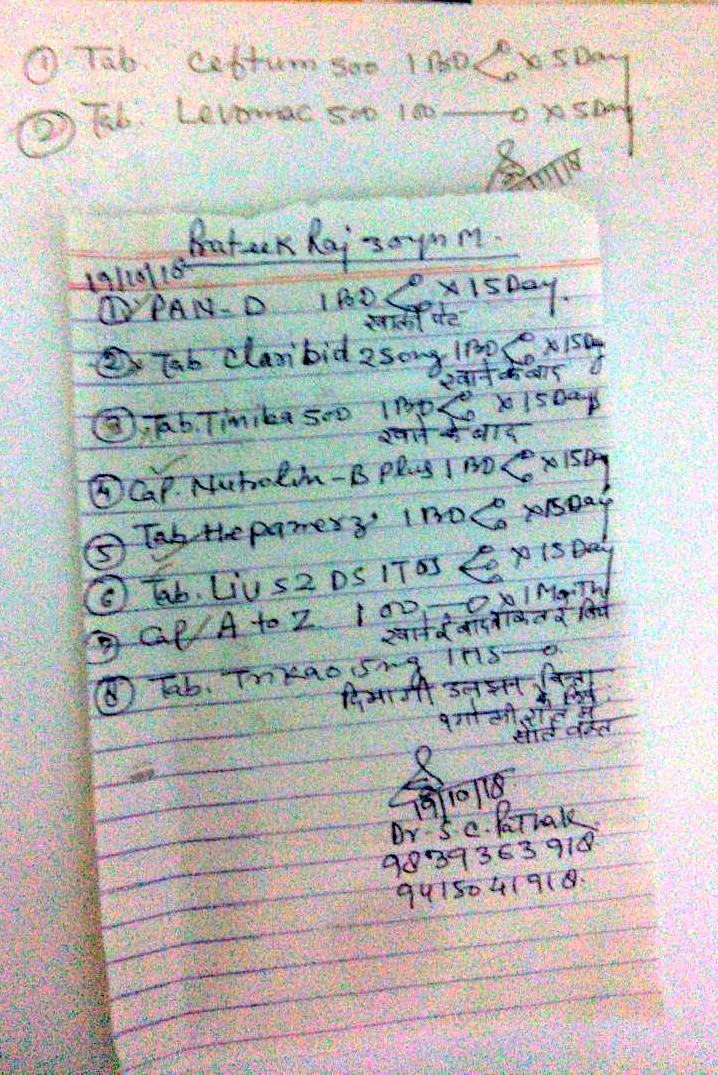 ① Tab. Ceftum 500 1 BD x 5 Day
② Tab. Levomac 500 1 OD — 0 x 5 Day
Prateek Raj 30yn M.
19/10/18
① PAN-D 1 BD x 15 Day.
खाली पेट
② Tab Claribid 250mg 1 BD x 15 Day
खाने के बाद
③ Tab. Timiba 500 1 BD x 15 Day
खाने के बाद
④ Cap. Nutrolin-B Plus 1 BD x 15 Day
⑤ Tab Hepamerz 1 BD x 15 Day
⑥ Tab. Liv 52 DS 1 TDS x 15 Day
⑦ Cap A to Z 1 OD — 0 x 1 Month
खाने के बाद ताकत के लिये
⑧ Tab. 5mg 1 HS — 0
दिमागी उलझन, चिन्ता
के लिये
१ गोली रात में
सोते वक्त
19/10/18
Dr. S. C. Pathak
9839363918
9415041918.